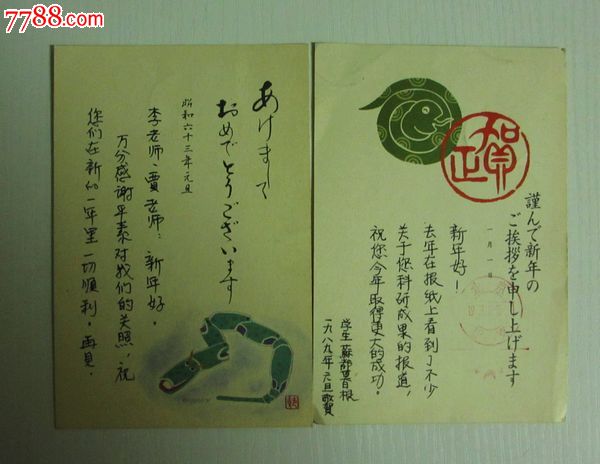 7788.com
あけまして
おめでとうございます
昭和六十三年元旦
李老师、賈老师：新年好。
万分感谢平素对我们的关照，祝
您们在新的一年里一切順利。再見。
賀正
謹んで新年の
ご挨拶を申し上げます
一月一日
新年好！
去年在报纸上看到了不少
关于您科研成果的报道，
祝您今年取得更大的成功。
学生
一九八九年元旦敬賀